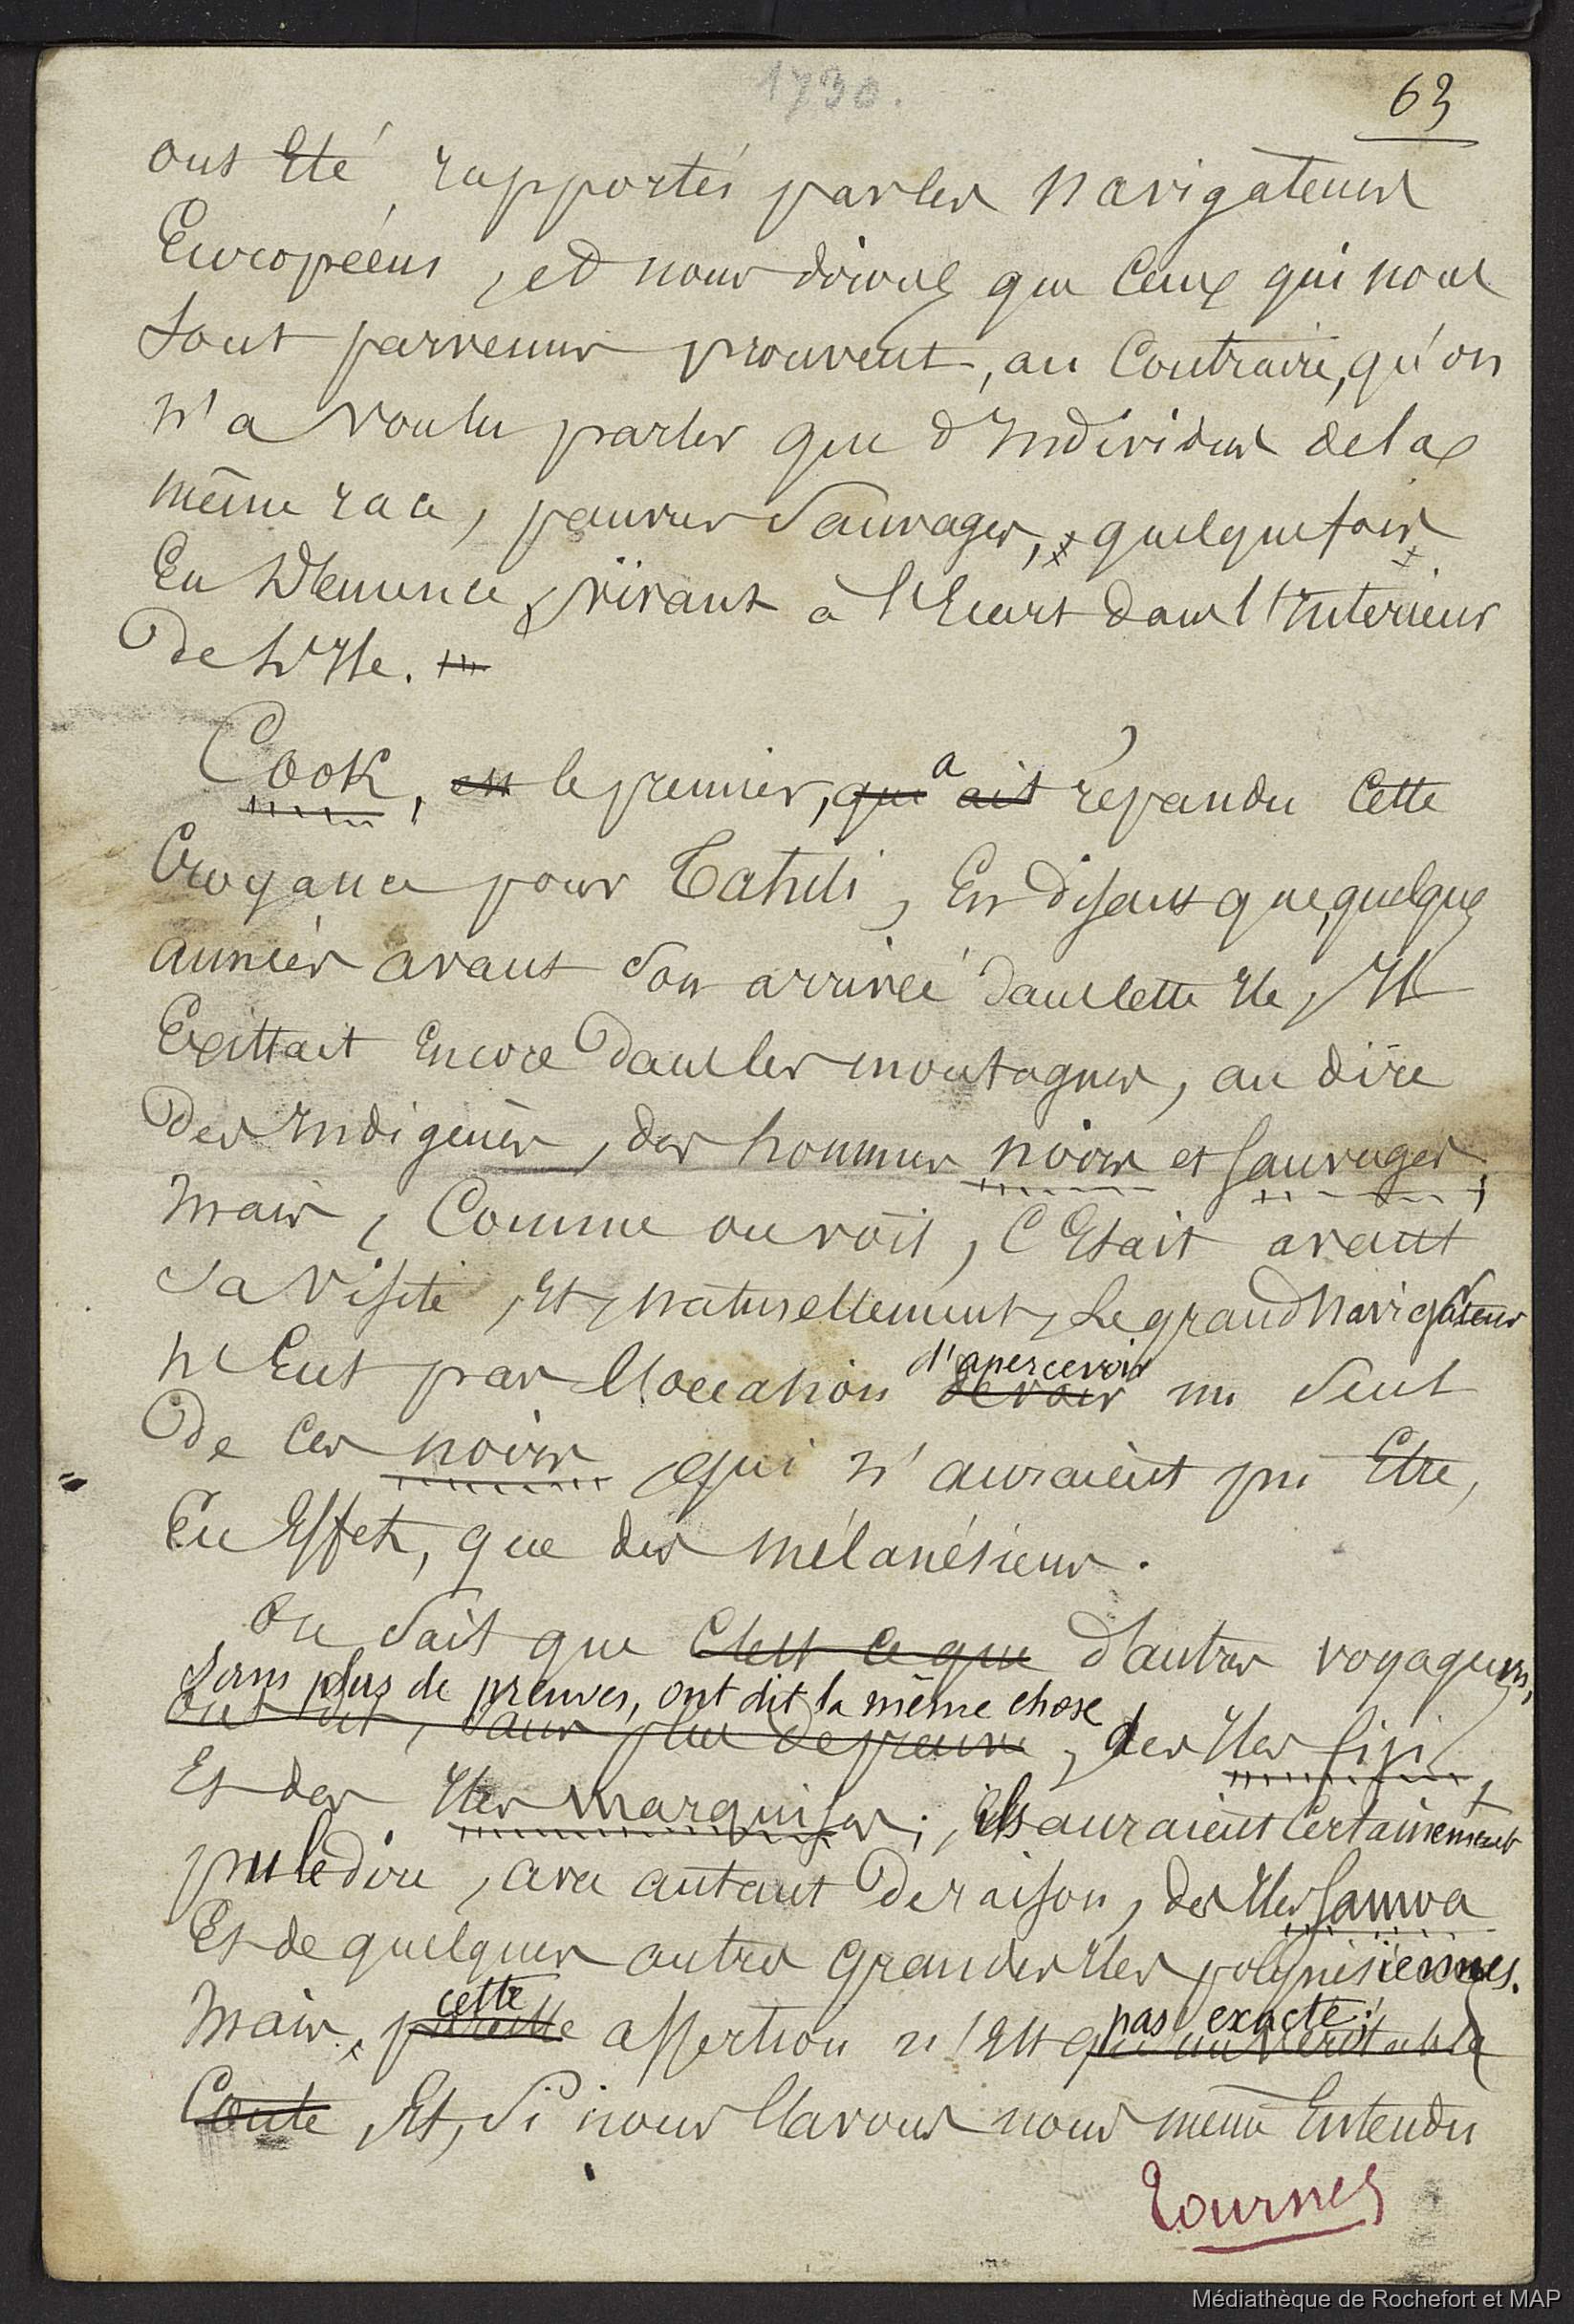 1730.
63
ont été rapportés par les navigateurs
Européens, et nous dirons que ceux qui nous
sont parvenus prouvent, au contraire, qu'on
n'a voulu parler que d'individus de la
même race, pauvres sauvages, quelquefois
en démence, vivant à l'écart dans l'intérieur
de l'île.
Cook, est le premier, qui a ait répandu cette
croyance pour Tahiti, en disant que, quelques
années avant son arrivée dans cette île, il
existait encore dans les montagnes, au dire
des indigènes, des hommes noirs et sauvages;
mais, comme on voit, c'était avant
sa visite, et, naturellement, le grand navigateur
n'eut pas l'occasion d'apercevoir de voir un seul
de ces noirs qui n'auraient pu être,
en effet, que des mélanésiens.
On sait que c'est ce que d'autres voyageurs,
sans plus de preuves, ont dit la même chose
ont dit, sans plus de preuve, des îles Fiji,
et des îles marquises; ils auraient certainement
pu le dire, avec autant de raison, des îles Samoa
et de quelques autres grandes îles polynésiennes.
cette pas exacte;
Mais, pareille assertion n'est qu'un véritable
conte, et, si nous l'avons nous même entendu
Tournez
Médiathèque de Rochefort et MAP